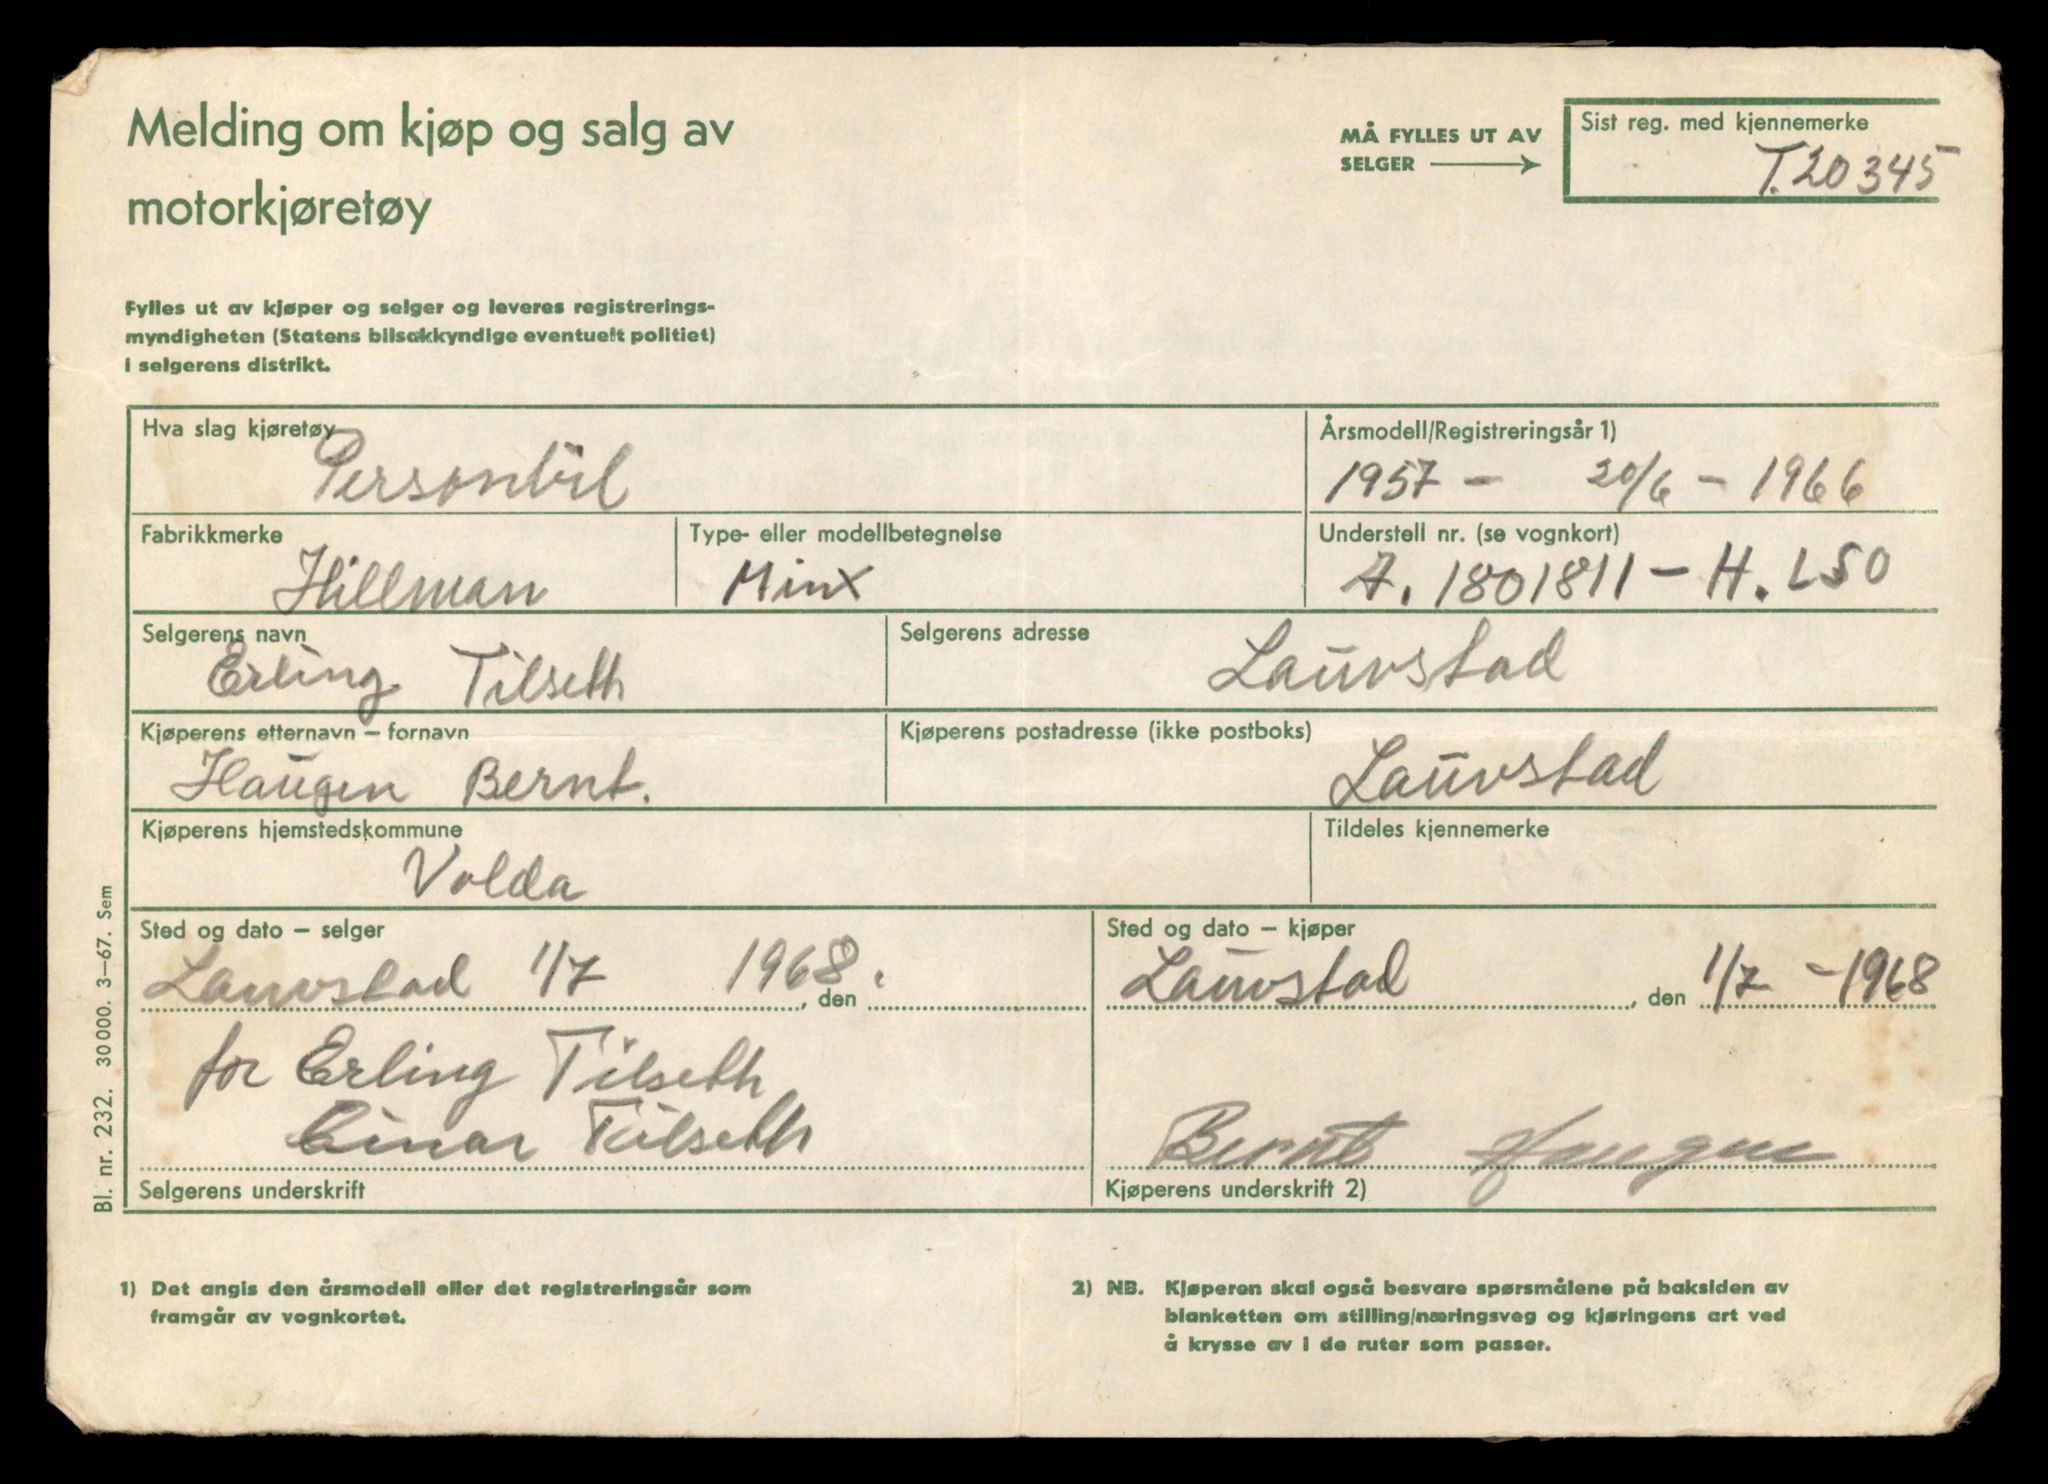 Melding om kjøp og salg av
motorkjøretøy
MÅ FYLLES UT AV
SELGER
Sist reg. med kjennemerke
T.20345
Fylles ut av kjøper og selger og leveres registrerings-
myndigheten (Statens bilsakkyndige eventuelt politiet)
i selgerens distrikt.
Hva slag kjøretøy
Personbil
Årsmodell/Registreringsår 1)
1957 - 20/6 - 1966
Fabrikkmerke
Hillman
Type- eller modellbetegnelse
Minx
Understell nr. (se vognkort)
A. 1801811 - H. LSO
Selgerens navn
Erling Tilseth
Selgerens adresse
Lauvstad
Kjøperens etternavn - fornavn
Haugen Bernt.
Kjøperens postadresse (ikke postboks)
Lauvstad
Kjøperens hjemstedskommune
Volda
Tildeles kjennemerke
Sted og dato - selger
Lauvstad 1/7 1968., den
for Erling Tilseth
Einar Tilseth
Selgerens underskrift
Sted og dato - kjøper
Lauvstad, den 1/7 - 1968
Bernt Haugen
Kjøperens underskrift 2)
Bl. nr. 232. 30 000. 3-67. Sem
1) Det angis den årsmodell eller det registreringsår som
framgår av vognkortet.
2) NB. Kjøperen skal også besvare spørsmålene på baksiden av
blanketten om stilling/næringsveg og kjøringens art ved
å krysse av i de ruter som passer.